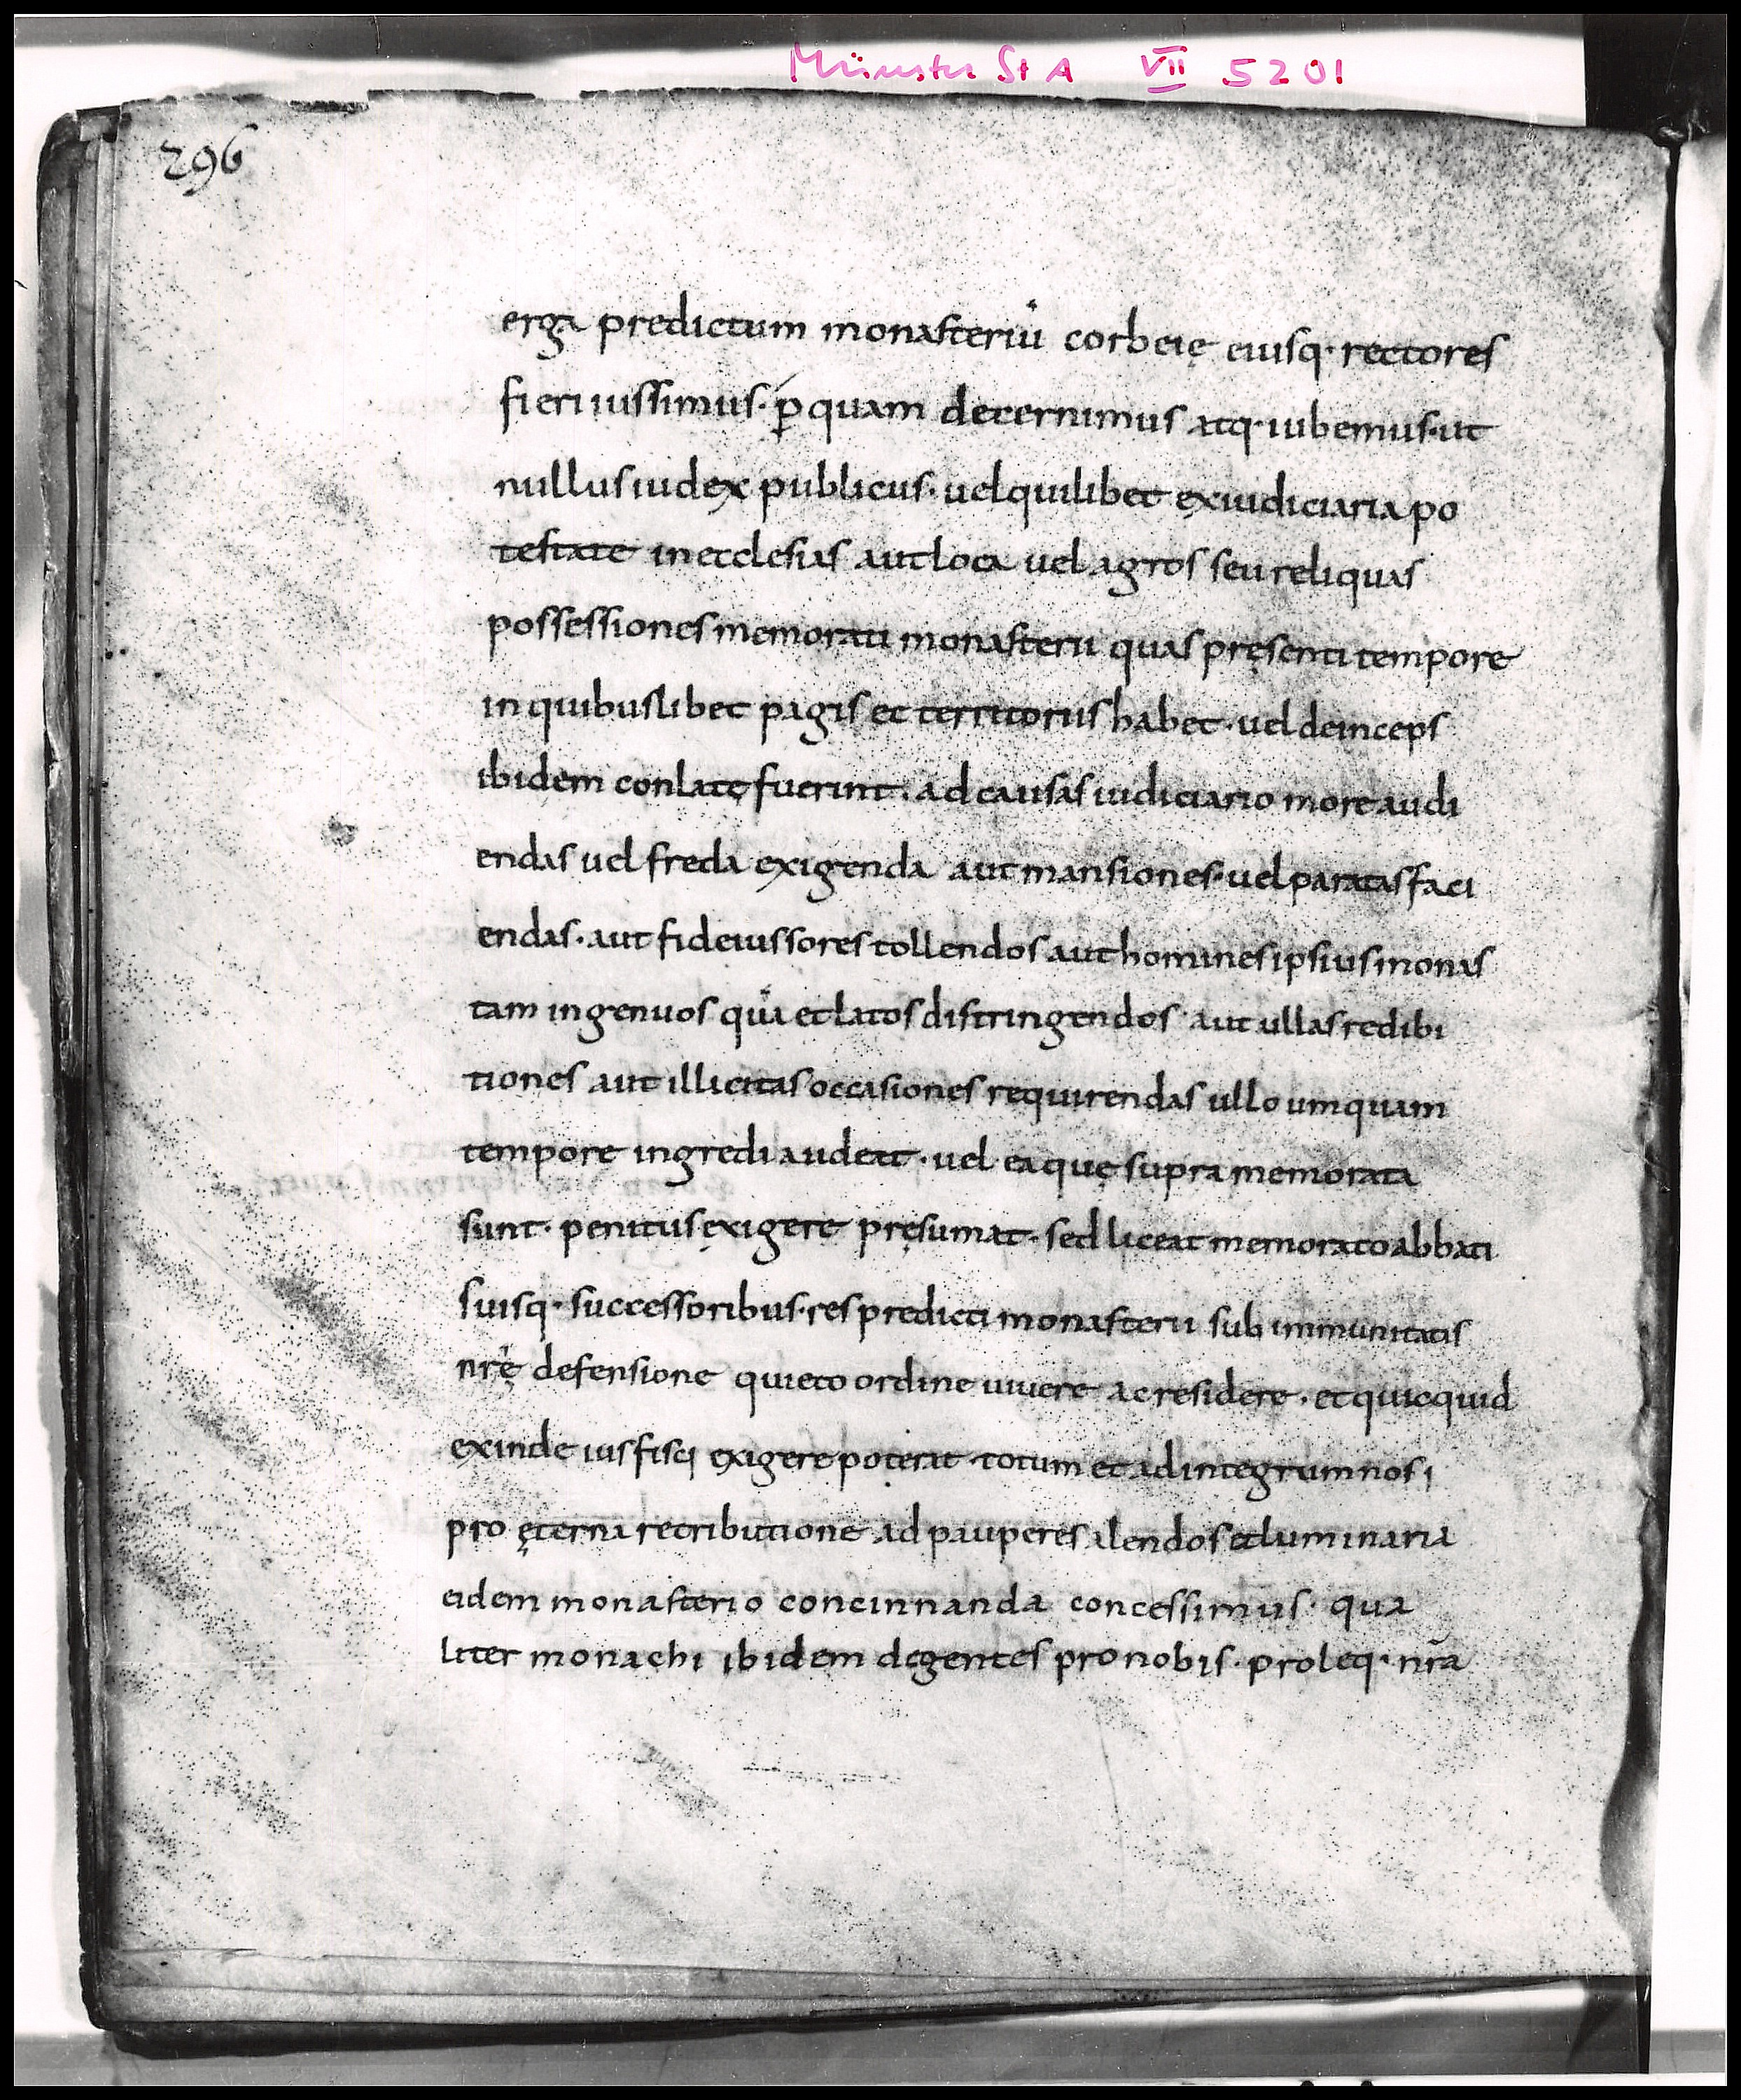 Münster StA VII 5201
296
erga predictum monasteriū corbeię eiusq· rectores
fieri iussimus· p̲ quam decernimus atq· iubemus· ut
nullus iudex publicus· uel quilibet ex iudiciaria po
testate in ecclesias aut loca uel agros seu reliquas
possessiones memorati monasterii quas pręsenti tempore
in quibuslibet pagis et territoriis habet· uel deinceps
ibidem conlatę fuerint· ad causas iudiciario more audi
endas uel freda exigenda aut mansiones· uel paratas faci
endas· aut fideiussores tollendos aut homines ipsius monas
tam ingenuos quā et latos distringendos· aut ullas redibi
tiones aut illicitas occasiones requirendas ullo umquam
tempore ingredi audeat· uel ea quę supra memorata
sunt· penitus exigere pręsumat· sed liceat memorato abbati
suisq· successoribus· res predicti monasterii sub immunitatis
nr̄ę defensione quieto ordine uiuere ac residere· et quicquid
exinde ius fisci exigere poterat· totum et ad integrum nos i
pro ęterna retributione ad pauperes alendos et luminaria
eidem monasterio concinnanda concessimus· qua
liter monachi ibidem degentes pro nobis· proleq· nr̄a